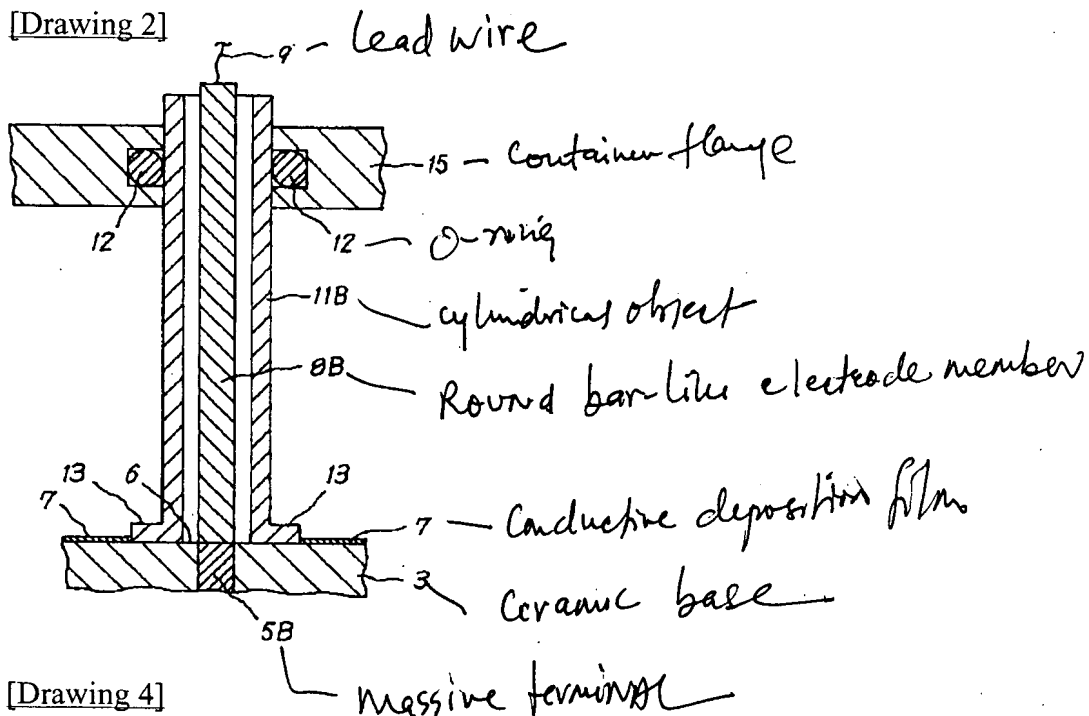 [Drawing 2]
9 - Lead wire
15 - Container flange
12
12 - O-ring
11B cylindrical object
8B Round bar-like electrode member
13 6 13
7 7 - Conductive deposition film
3 Ceramic base
5B Massive terminal
[Drawing 4]